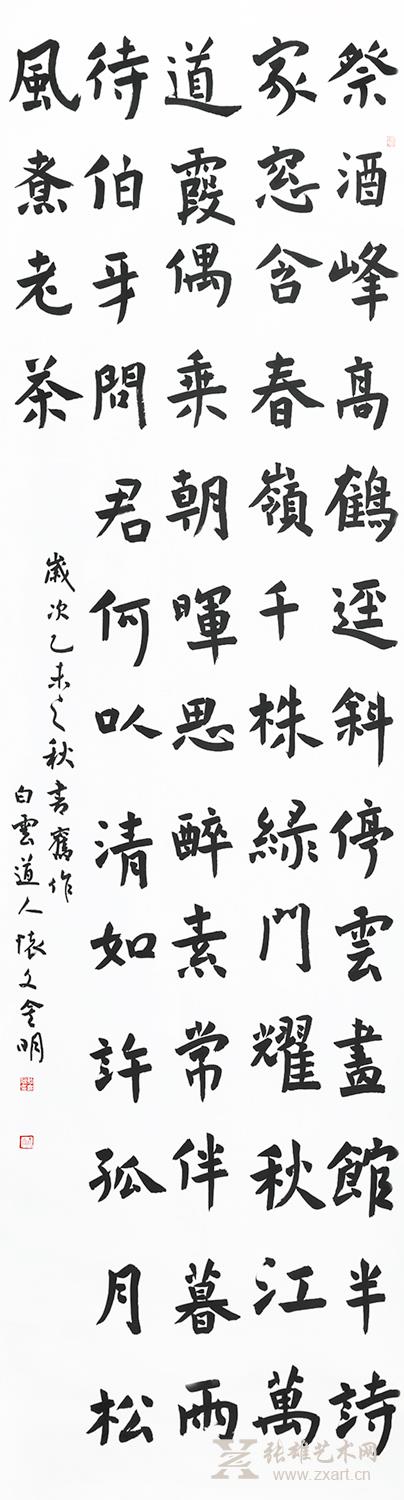 祭酒峰高鶴逕斜停雲畫館半詩
家窓含春嶺千株緑門耀秋江萬
道霞偶乗朝暉思醉素常伴暮雨
待伯牙問君何以清如許孤月松
風煮老茶
歲次乙未之秋書舊作
白雲道人懷文金明
张雄艺术网
www.zxart.cn